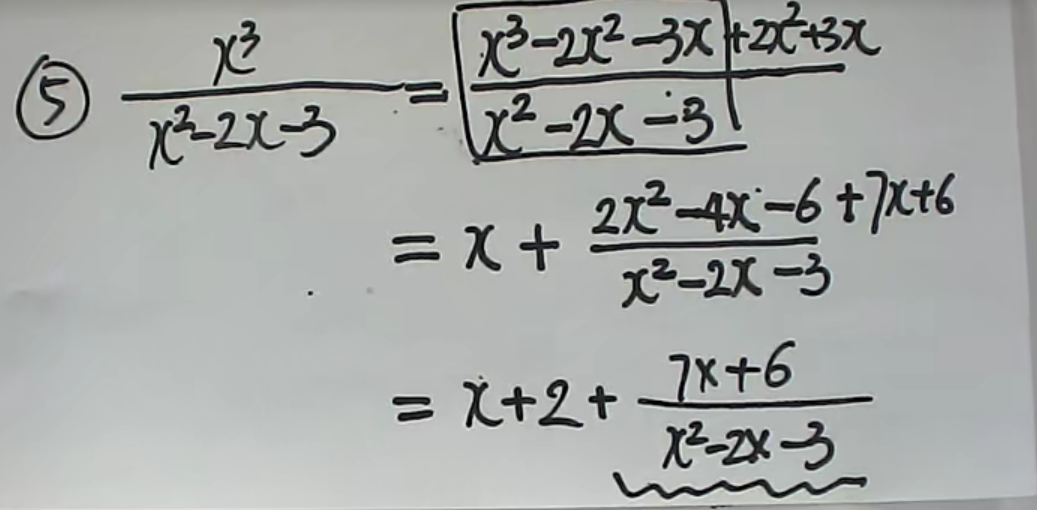 ⑤ x³/(x²-2x-3) = (x³-2x²-3x+2x²+3x)/(x²-2x-3)
= x + (2x²-4x-6+7x+6)/(x²-2x-3)
= x+2+ (7x+6)/(x²-2x-3)